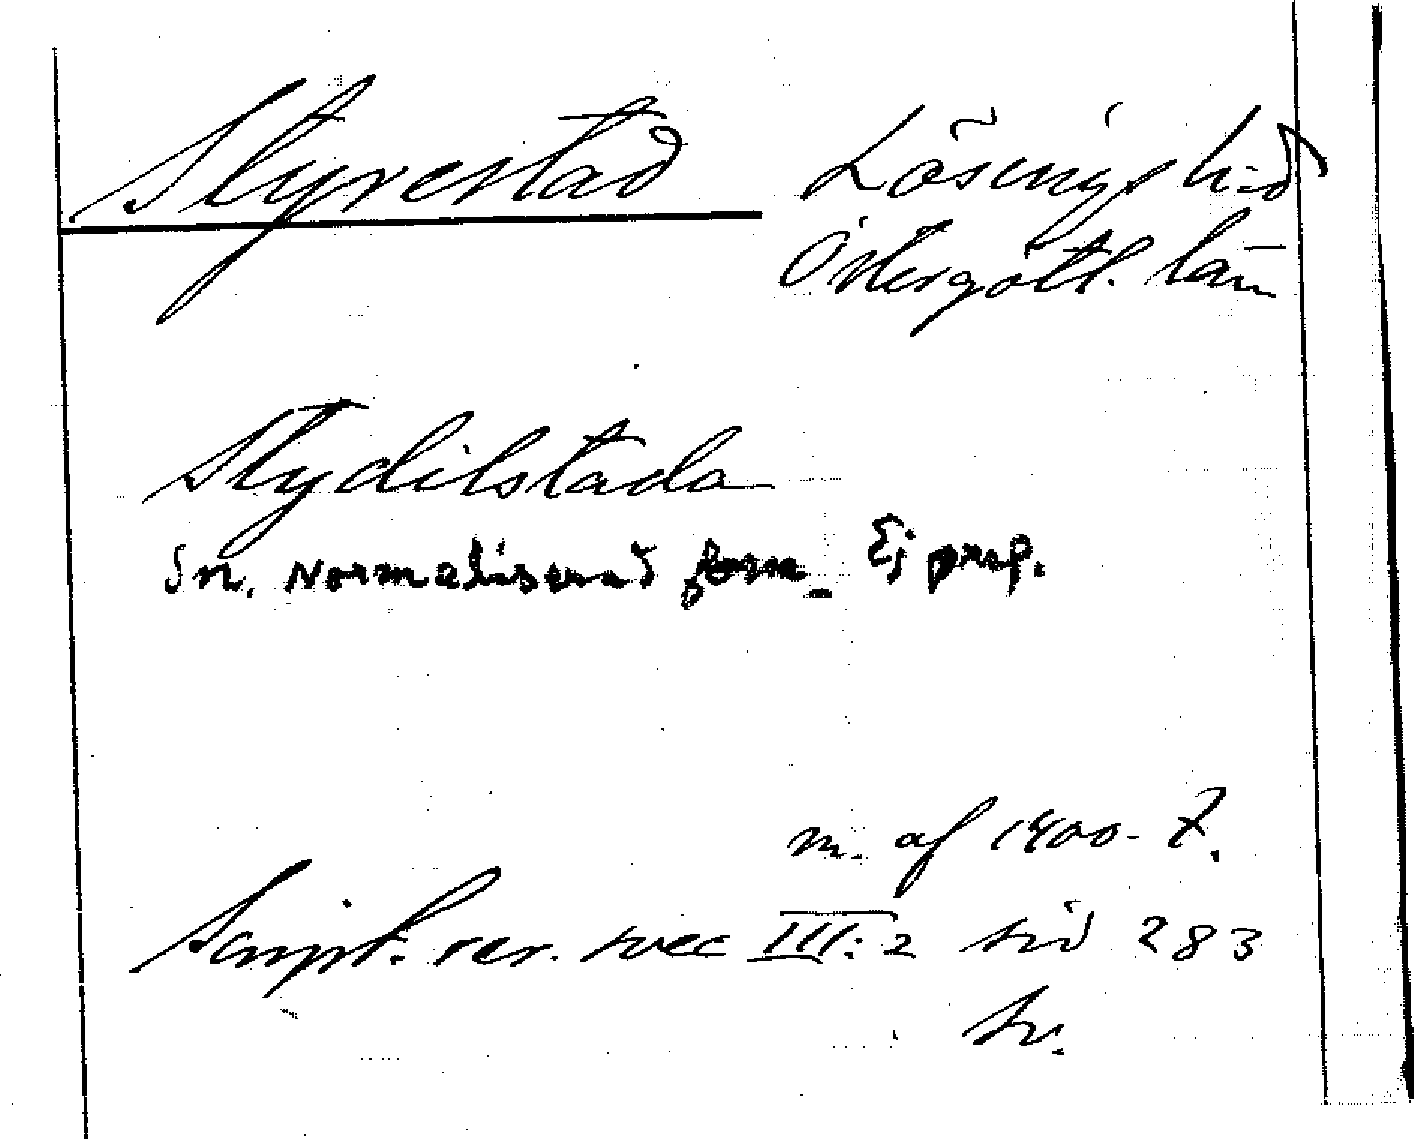 Styrestad Lösings h-d
Östergötl. län
Stydilstada
Sn. Normaliserad form. Ej prep.
m. af 1400-t.
Script. rer. svec III:2 sid 283